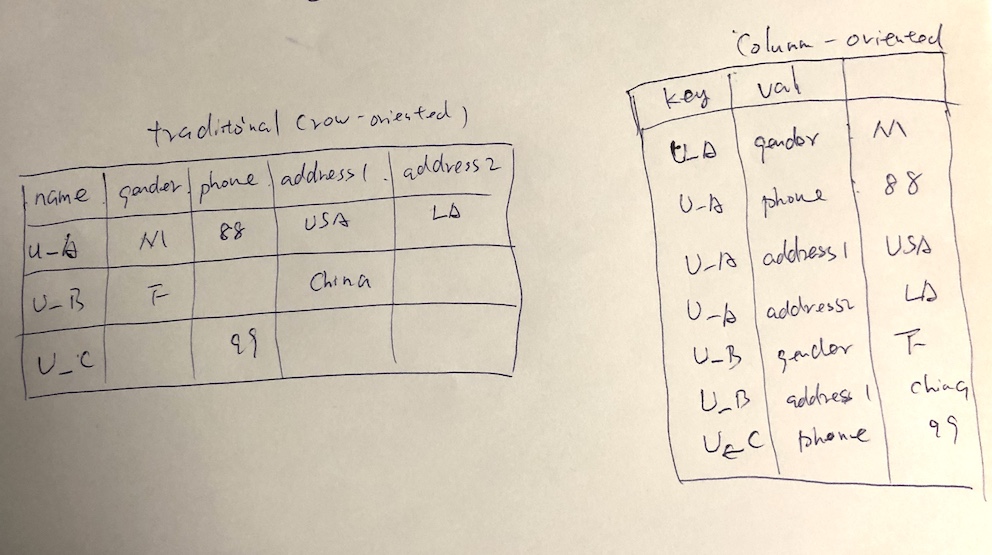 traditional (row-oriented)
name gender phone address1 address2
U_A M 88 USA LA
U_B F China
U_C 99
Column-oriented
key val
U_A gender M
U_A phone 88
U_A address1 USA
U_A address2 LA
U_B gender F
U_B address1 China
U_C phone 99